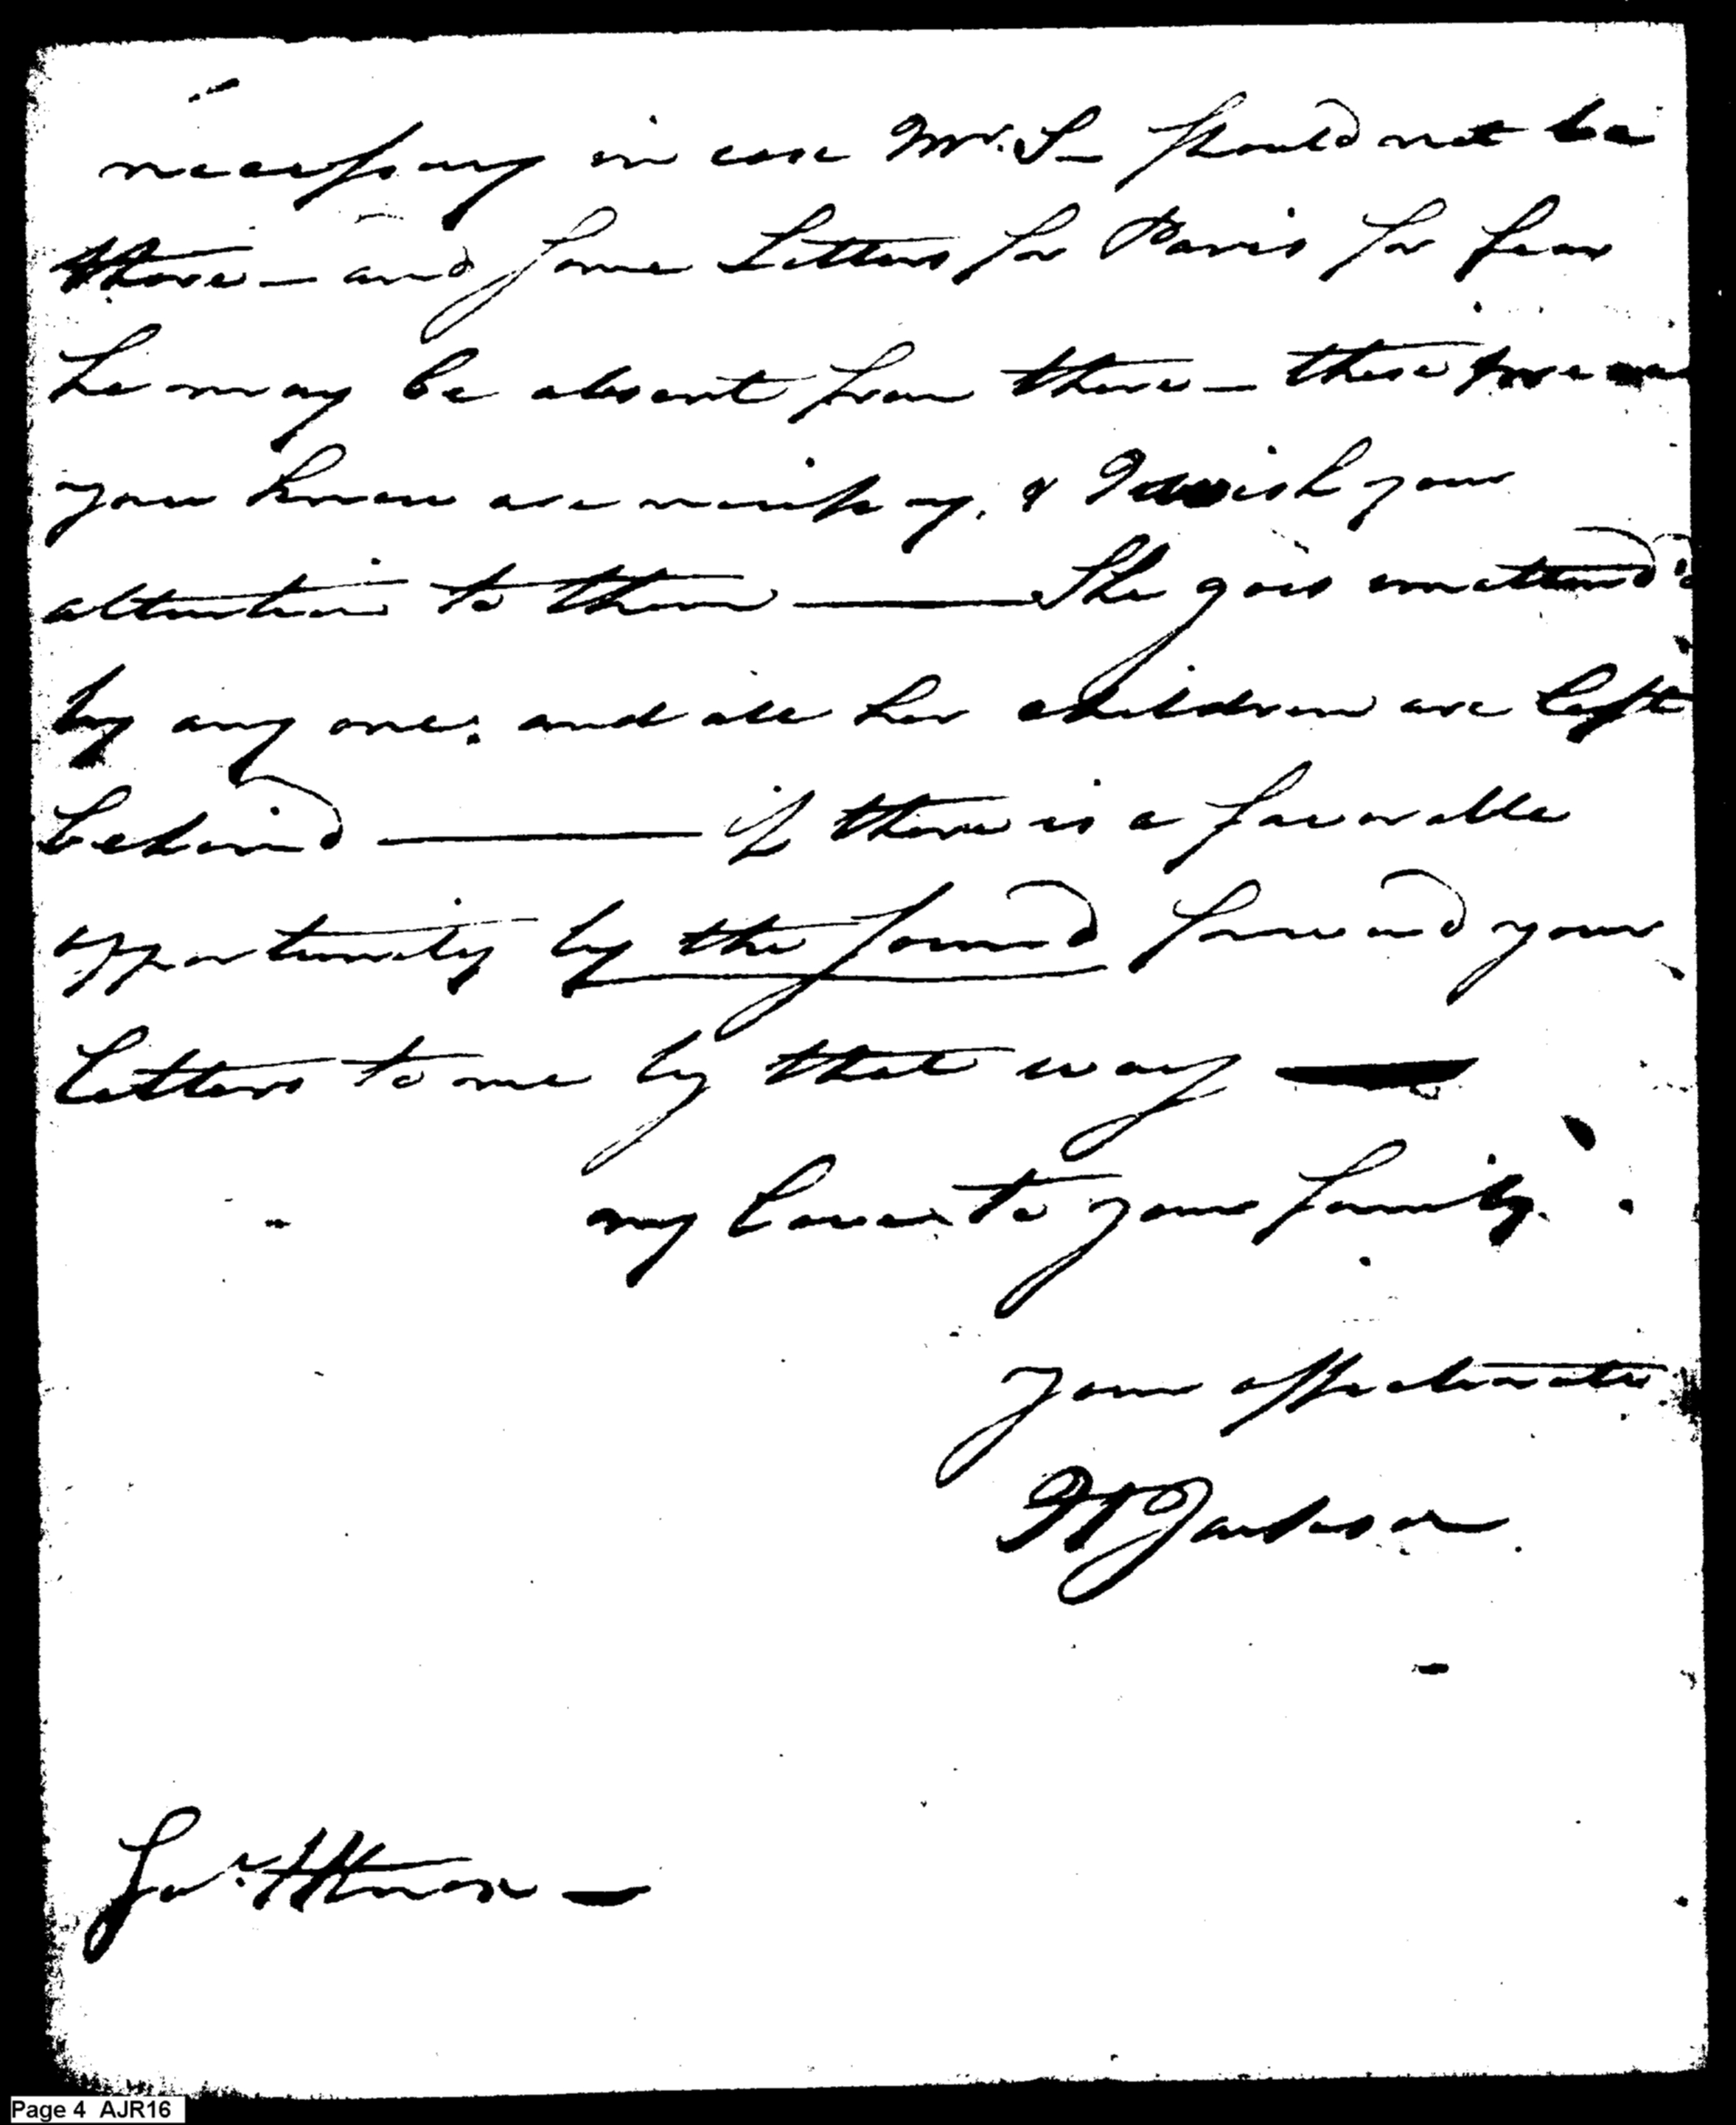 necessary in case Mr. S— should not be
there — and some Letters for Paris for fear
he may be absent from there — these
you know are necessary, & I wish your
attention to them — She goes unattend'd
by any one, and all her children are left
behind — if there is a favorable
opportunity by the sound forward your
letters to me by that way —
my love to your family.
Your affectionate
H Jackson.
—